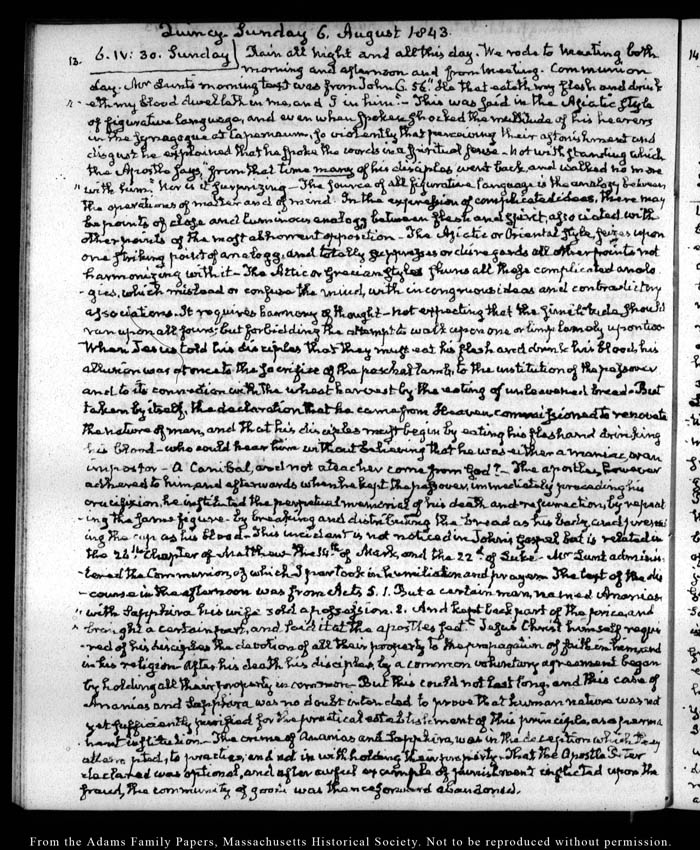 Quincy Sunday 6. August 1843.
13. 6. IV: 30. Sunday) Rain all night and all this day. We rode to Meeting both
morning and afternoon and from Meeting. Communion
day. Mr Lunt's morning text was from John 6. 56. "He that eateth my flesh and drink-
" eth my blood dwelleth in me, and I in him." - This was said in the Asiatic style
of figurative language, and even when spoken shocked the multitude of his hearers
in the synagogue at Capernaum, so violently that perceiving their astonishment and
disgust he explained that he spoke the words in a spiritual sense. Notwithstanding which
the Apostle says, from that time many of his disciples went back and walked no more
" with him." Nor is it surprizing - The source of all figurative language is the analogy between
the operations of matter and of mind. In the expression of complicated ideas, there may
be points of close and luminous analogy between flesh and spirit, associated with
other points of the most abhorrent opposition - The Asiatic or Oriental style, seizes upon
one striking point of analogy, and totally suppresses or disregards all other points not
harmonizing with it - The Attic or Grecian styles shuns all these complicated analo-
- gies, which mislead or confuse the mind, with incongruous ideas and contradictory
associations. It requires harmony of thought - not expecting that the similitude should
run upon all fours; but forbidding the attempt to walk upon one or limp lamely upon two
When Jesus told his disciples that they must eat his flesh and drink his blood, his
allusion was at once to the sacrifice of the paschal lamb, to the institution of the passover
and to its connection with the wheat harvest by the eating of unleavened bread - But
taken by itself, the declaration that he came from Heaven commissioned to renovate
the nature of man, and that his disciples must begin by eating his flesh and drinking
his blood - who could hear him without believing that he was either a maniac, or an
impostor - A Canibal, and not a teacher come from God? - The apostles, however
adhered to him, and afterwards when he kept the passover, immediately preceding his
crucifixion, he instituted the perpetual memorial of his death and resurrection, by repeat-
- ing the same figure - by breaking and distributing the bread as his body, and present-
ing the cup as his blood - This incident is not noticed in John's Gospel but is related in
the 26th Chapter of Matthew the 14th of Mark, and the 22d of Luke - Mr Lunt adminis-
tered the Communion, of which I partook in humiliation and prayer. The text of the dis-
- course in the afternoon was from Acts 5. 1. But a certain man, named Ananias
" with Sapphira his wife sold a possession. 2. And kept back part of the price, and
" brought a certain part, and laid it at the apostles feet." Jesus Christ himself requi-
red of his disciples the devotion of all their property to the propagation of faith in him, and
in his religion. After his death his disciples, by a common voluntary agreement began
by holding all their property in common - But this could not last long, and this case of
Ananias and Sapphira was no doubt intended to prove that human nature was not
yet sufficiently purified for the practical establishment of this principle, as a perma-
nent institution - The crime of Ananias and Sapphira, was in the deception which they
attempted, to practice, and not in withholding their property - That the Apostle Peter
declared was optional, and after awful example of punishment inflicted upon the
fraud, the community of goods was thenceforward abandoned.
From the Adams Family Papers, Massachusetts Historical Society. Not to be reproduced without permission.